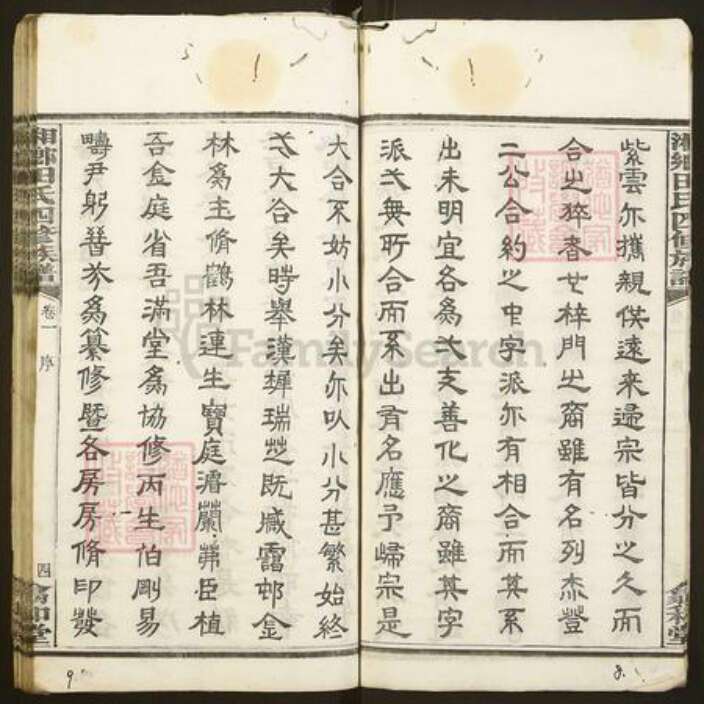 湘鄉田氏四修族譜
紫雲亦攜親供遠來歸宗皆分之久而
合之猝者廿梓門之裔雖有名列杰登
二公合約之中字派亦有相合而其系
出未明宜各為一支善化之裔雖其字
派一無所合而系出有名應予歸宗是
大合不妨小分矣亦以小分甚繁始終
一大合矣時舉漢墀瑞芝既臧霱邨金
林為主脩鶴林連生寶庭濬蘭弗臣植
吾盒庭省吾滿堂為協修丙生伯剛易
疇尹躬晉芬為纂修暨各房房脩印發
湘鄉田氏四修族譜
卷一
序
四
堂
FamilySearch
8.
9